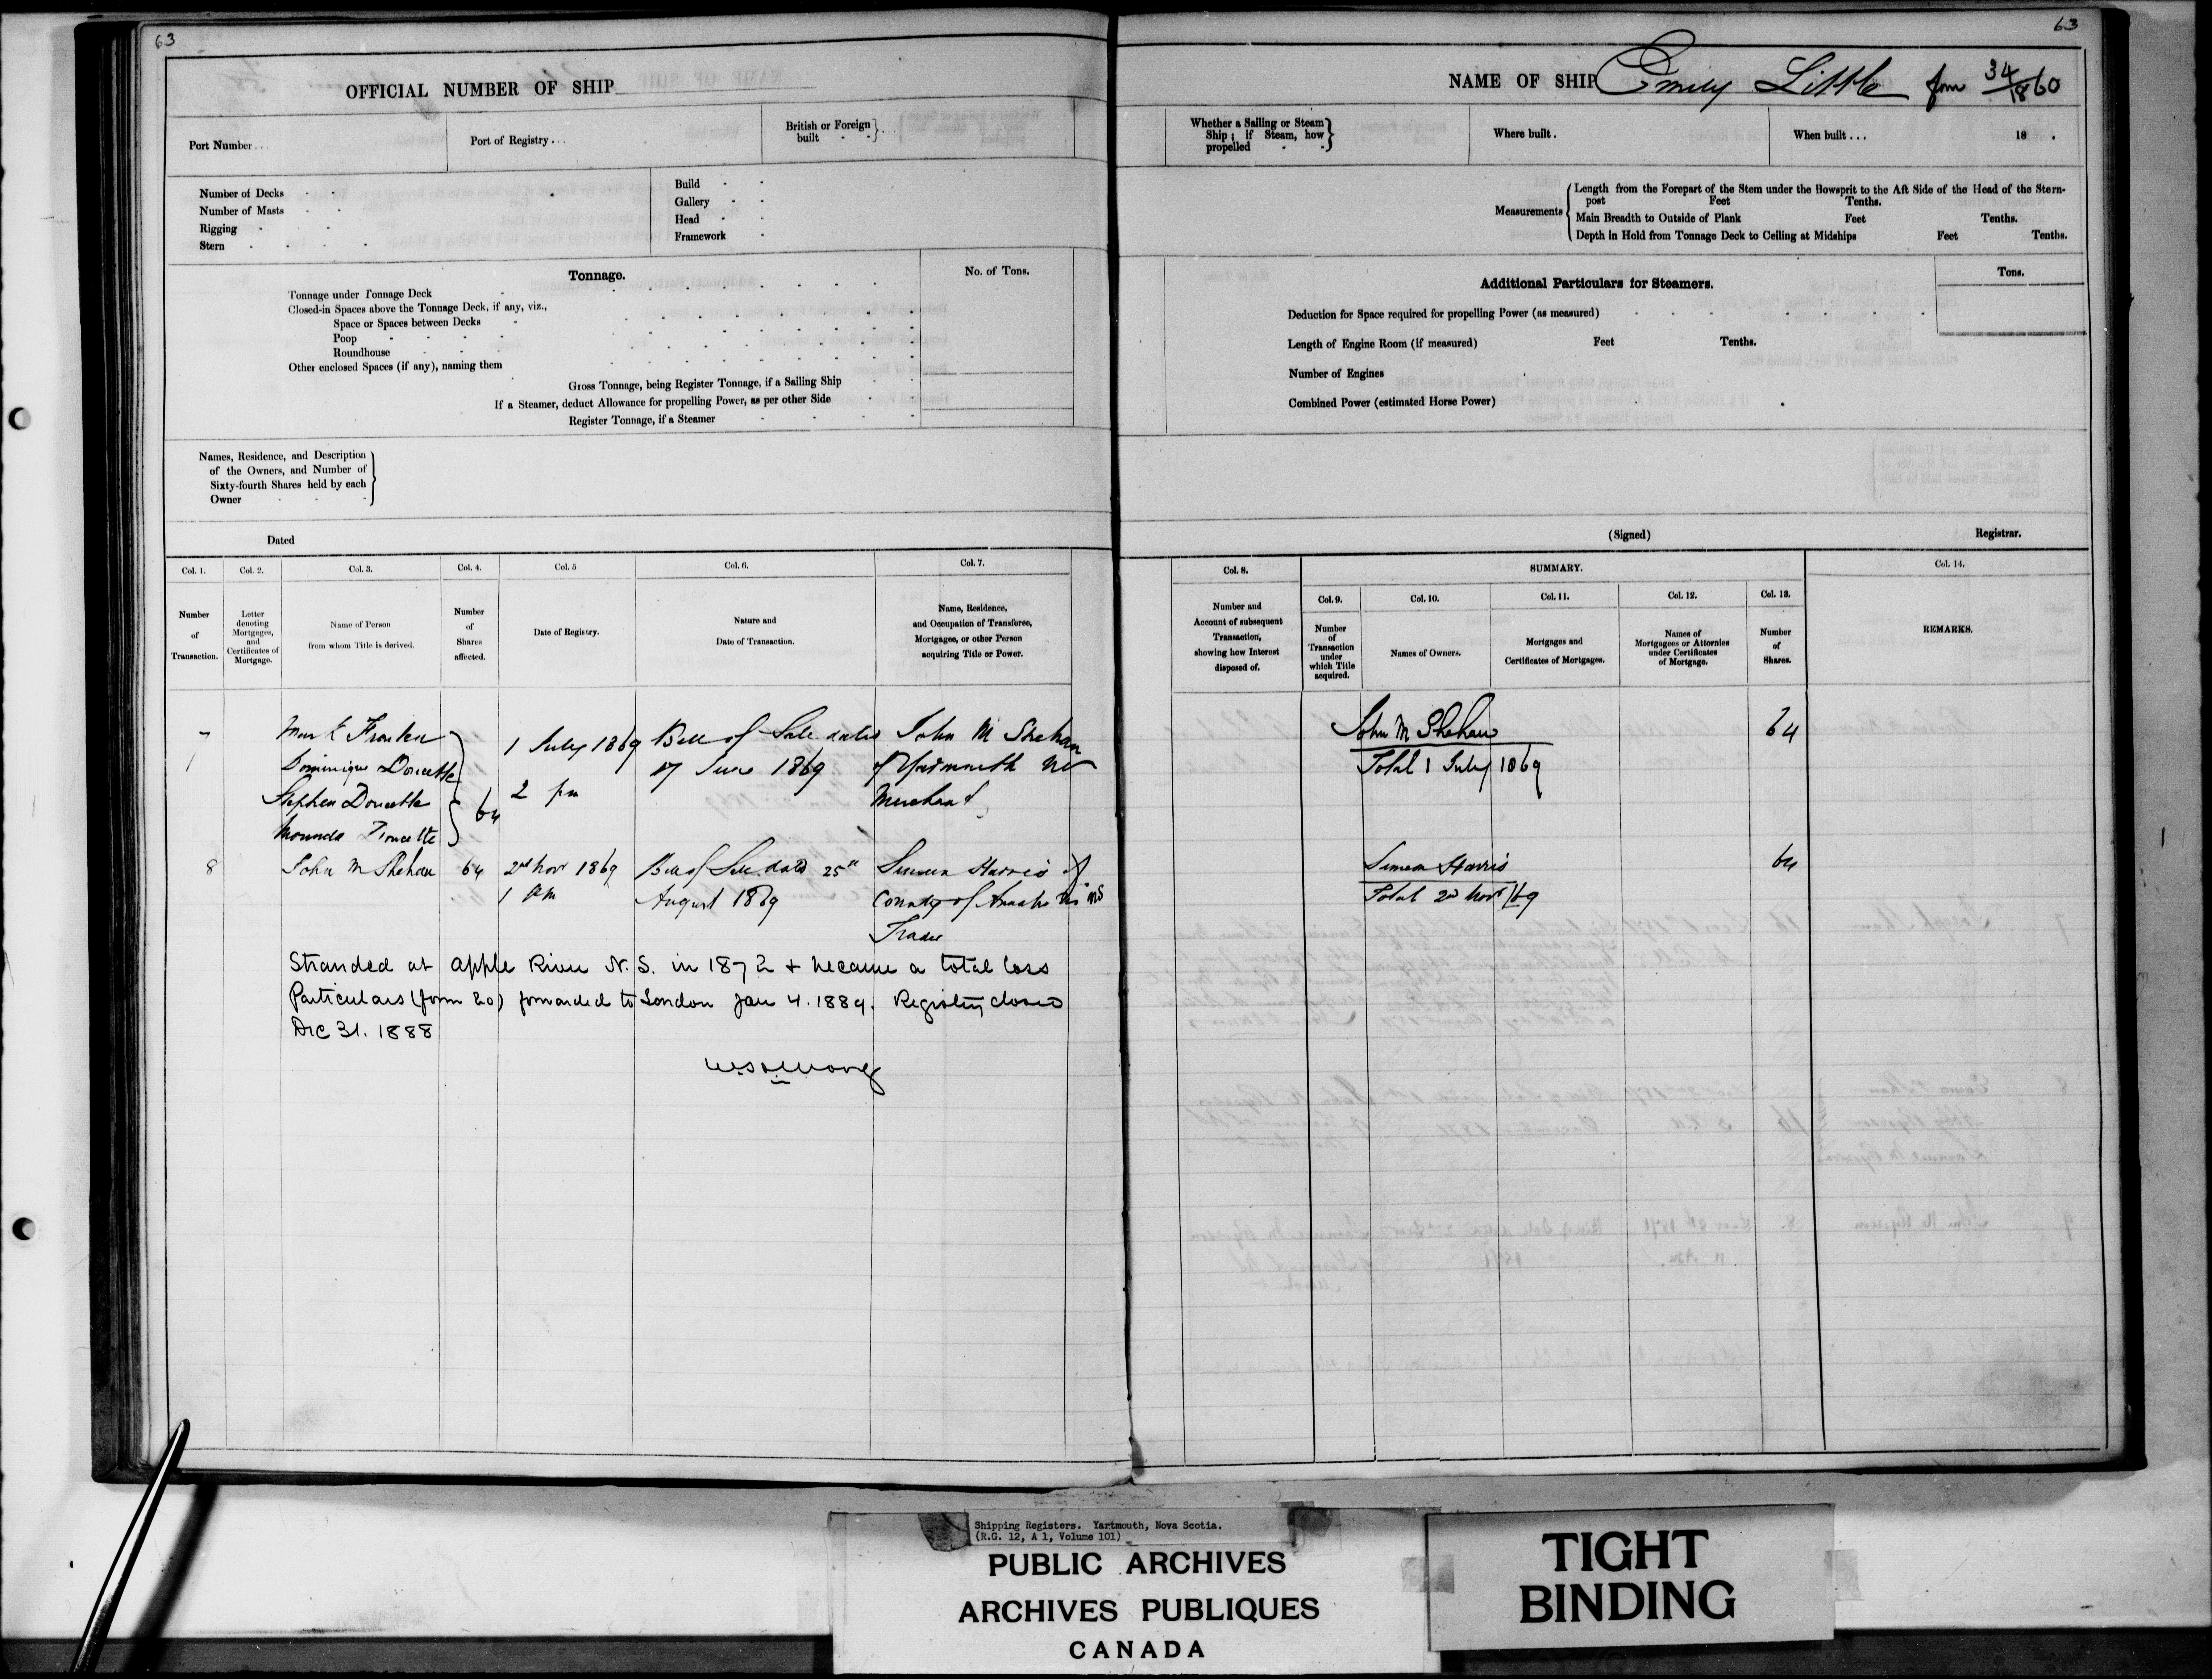 63
OFFICIAL NUMBER OF SHIP
Port Number . . .
Port of Registry . . .
British or Foreign built
Number of Decks
Number of Masts
Rigging
Stern
Build
Gallery
Head
Framework
Tonnage.
No. of Tons.
Tonnage under Tonnage Deck
Closed-in Spaces above the Tonnage Deck, if any, viz.,
Space or Spaces between Decks
Poop
Roundhouse
Other enclosed Spaces (if any), naming them
Gross Tonnage, being Register Tonnage, if a Sailing Ship
If a Steamer, deduct Allowance for propelling Power, as per other Side
Register Tonnage, if a Steamer
Names, Residence, and Description
of the Owners, and Number of
Sixty-fourth Shares held by each
Owner
Dated
Col. 1.
Number of Transaction.
Col. 2.
Letter denoting Mortgages, and Certificates of Mortgage.
Col. 3.
Name of Person
from whom Title is derived.
Col. 4.
Number of Shares affected.
Col. 5
Date of Registry.
Col. 6.
Nature and
Date of Transaction.
Col. 7.
Name, Residence,
and Occupation of Transferee,
Mortgagee, or other Person
acquiring Title or Power.
7
Dominique Doucette
Stephen Doucette
Doucette
64
1 July 1869
2 pm
Bill of Sale dated
17 June 1869
John M Shehan
of Yarmouth NS
Merchant
8
John M Shehan
64
2nd Nov 1869
1 pm
Bill of Sale dated 25th
August 1869
Simeon Harris of
County of NS
Trader
Stranded at Apple River N.S. in 1872 + became a total loss
Particulars (form 20) forwarded to London Jan 4. 1889. Registry closed
Dec 31. 1888
63
NAME OF SHIP Emily Little from 34/1860
Whether a Sailing or Steam
Ship; if Steam, how
propelled
Where built.
When built . . .
18 .
Measurements
Length from the Forepart of the Stem under the Bowsprit to the Aft Side of the Head of the Stern-
post Feet Tenths.
Main Breadth to Outside of Plank Feet Tenths.
Depth in Hold from Tonnage Deck to Ceiling at Midships Feet Tenths.
Additional Particulars for Steamers.
Tons.
Deduction for Space required for propelling Power (as measured)
Length of Engine Room (if measured) Feet Tenths.
Number of Engines
Combined Power (estimated Horse Power)
(Signed)
Registrar.
Col. 8.
Number and
Account of subsequent
Transaction,
showing how Interest
disposed of.
SUMMARY.
Col. 9.
Number of Transaction under which Title acquired.
Col. 10.
Names of Owners.
Col. 11.
Mortgages and
Certificates of Mortgages.
Col. 12.
Names of
Mortgagees or Attornies
under Certificates
of Mortgage.
Col. 13.
Number of Shares.
Col. 14.
REMARKS.
John M Shehan
64
Total 1 July 1869
Simeon Harris
64
Total 2nd Nov /69
Shipping Registers. Yartmouth, Nova Scotia.
(R.G. 12, A 1, Volume 101)
PUBLIC ARCHIVES
ARCHIVES PUBLIQUES
CANADA
TIGHT
BINDING